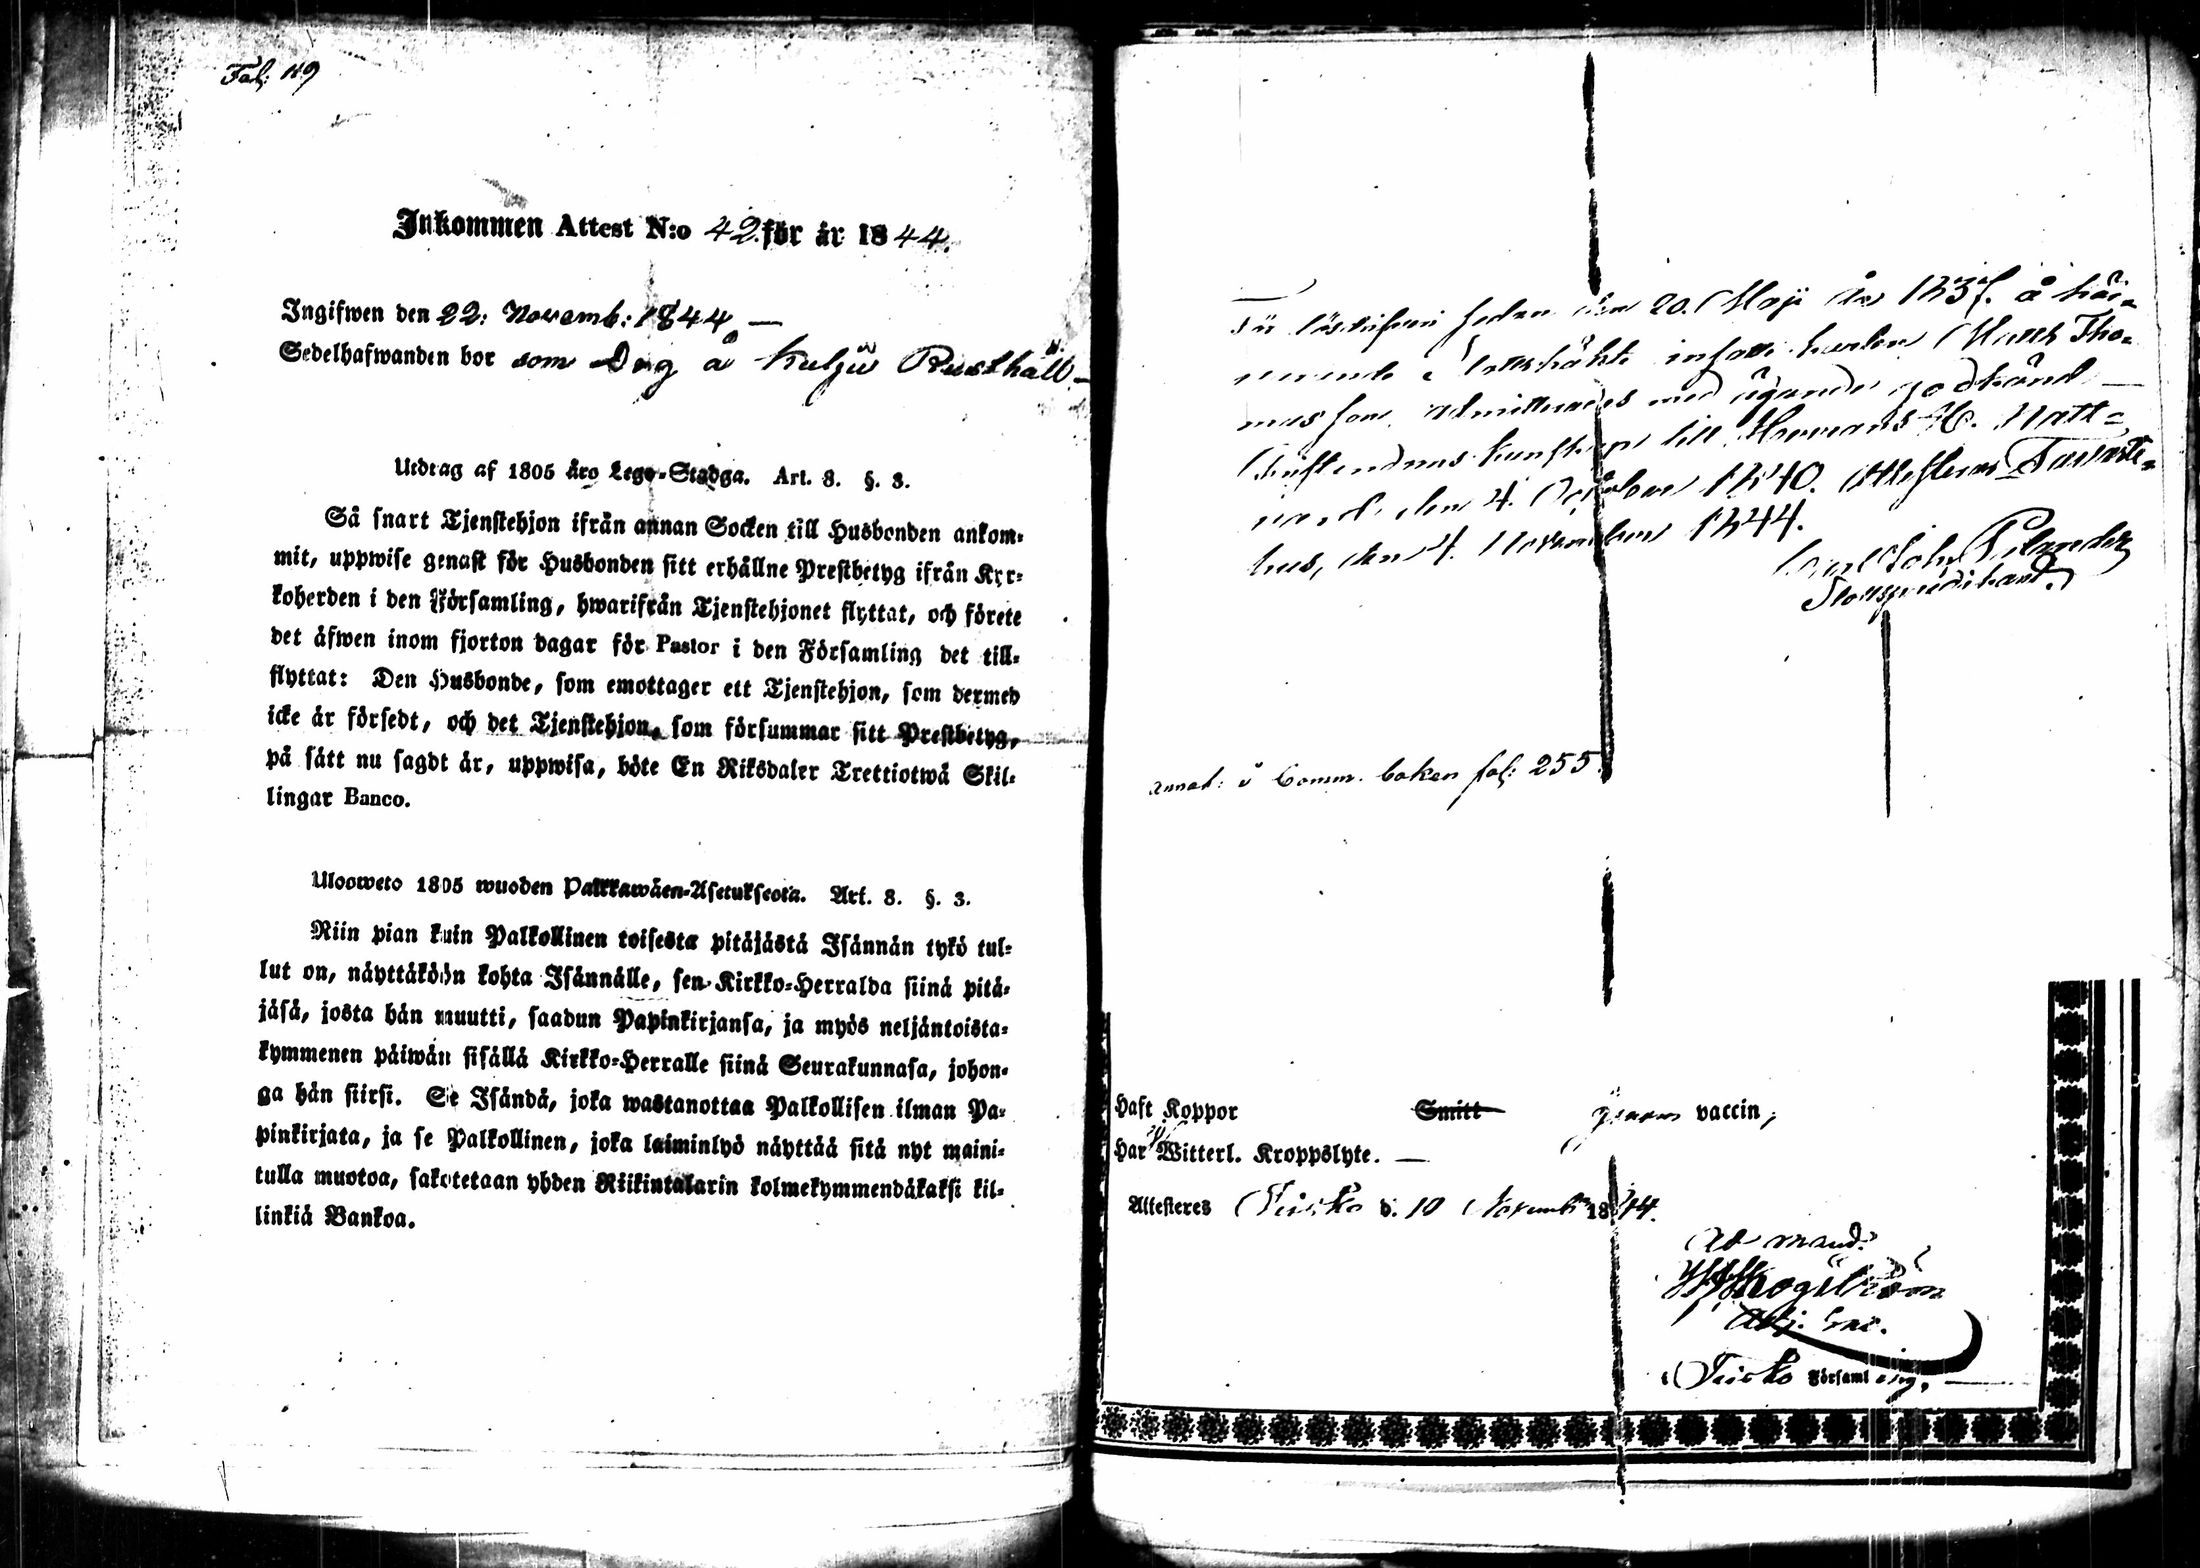 Fol; 119
Inkommen Attest N:o 42. för år 1844.
Ingifwen den 22: Novemb: 1844 —
Sedelhafwanden bor som Drg å Kulju Rusthåll —
Utdrag af 1805 års Lego-Stadga. Art. 8. §. 3.
Så snart Tjenstehjon ifrån annan Socken till Husbonden ankom-
mit, uppwise genast för Husbonden sitt erhållne Prestbetyg ifrån Kyr-
koherden i den Församling, hwarifrån Tjenstehjonet flyttat, och förete
det äfwen inom fjorton dagar för Pastor i den Församling det till-
flyttat: Den Husbonde, som emottager ett Tjenstehjon, som dermed
icke är försedt, och det Tjenstehjon, som försummar sitt Prestbetyg,
på sätt nu sagdt är, uppwisa, böte En Riksdaler Trettiotwå Skil-
lingar Banco.
Ulosweto 1805 wuoden Palkkawäen-Asetuksesta. Art. 8. §. 3.
Niin pian kuin Palkollinen toisesta pitäjästä Isännän tykö tul-
lut on, näyttäköön kohta Isännälle, sen Kirkko-Herralda siinä pitä-
jäsä, josta hän muutti, saadun Papinkirjansa, ja myös neljäntoista-
kymmenen päiwän sisällä Kirkko-Herralle siinä Seurakunnasa, johon-
ga hän siirsi. Se Isändä, joka wastanottaa Palkollisen ilman Pa-
pinkirjata, ja se Palkollinen, joka laiminlyö näyttää sitä nyt maini-
tulla muotoa, sakotetaan yhden Riikintalarin kolmekymmendäkaksi kil-
linkiä Bankoa.
sedan den 20. Maji år 183 å här-
Matts Tho-
masson, admitterades med ägande godkänd —
Christendoms kunskap till Herrans H. Natt-
vard den 4. October 1840. Attesteras Tavaste-
hus, den 4. November 1844.
Carl Joh.
Slottspredikant.
annot: i Comm. boken fol; 255.
Haft Koppor Smitt genom vaccin,
Har ej Witterl. Kroppslyte. —
Attesteres Teisko d. 10 Novemb 1844.
Ad mand:
Adj. Sac.
i Teisko Församling, —